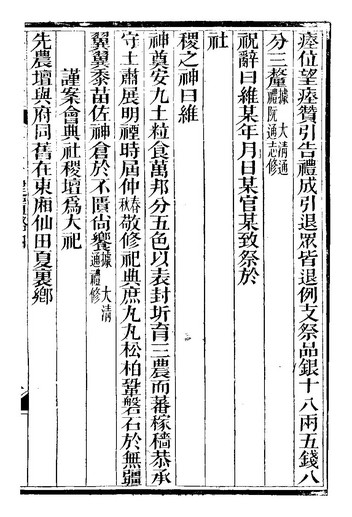 瘞位望瘞贊引告禮成引退眾皆退例支祭品銀十八兩五錢八
分三釐據大清通禮阮通志修
祝辭曰維某年月日某官某致祭於
社
稷之神曰維
神奠安九土粒食萬邦分五色以表封圻育三農而蕃稼穡恭承
守土肅展明禋時屆仲春秋敬修祀典庶丸丸松柏鞏磐石於無疆
翼翼黍苗佐神倉於不匱尚饗據大清通禮修
謹案會典社稷壇為大祀
先農壇與府同舊在東廂仙田夏裏鄉